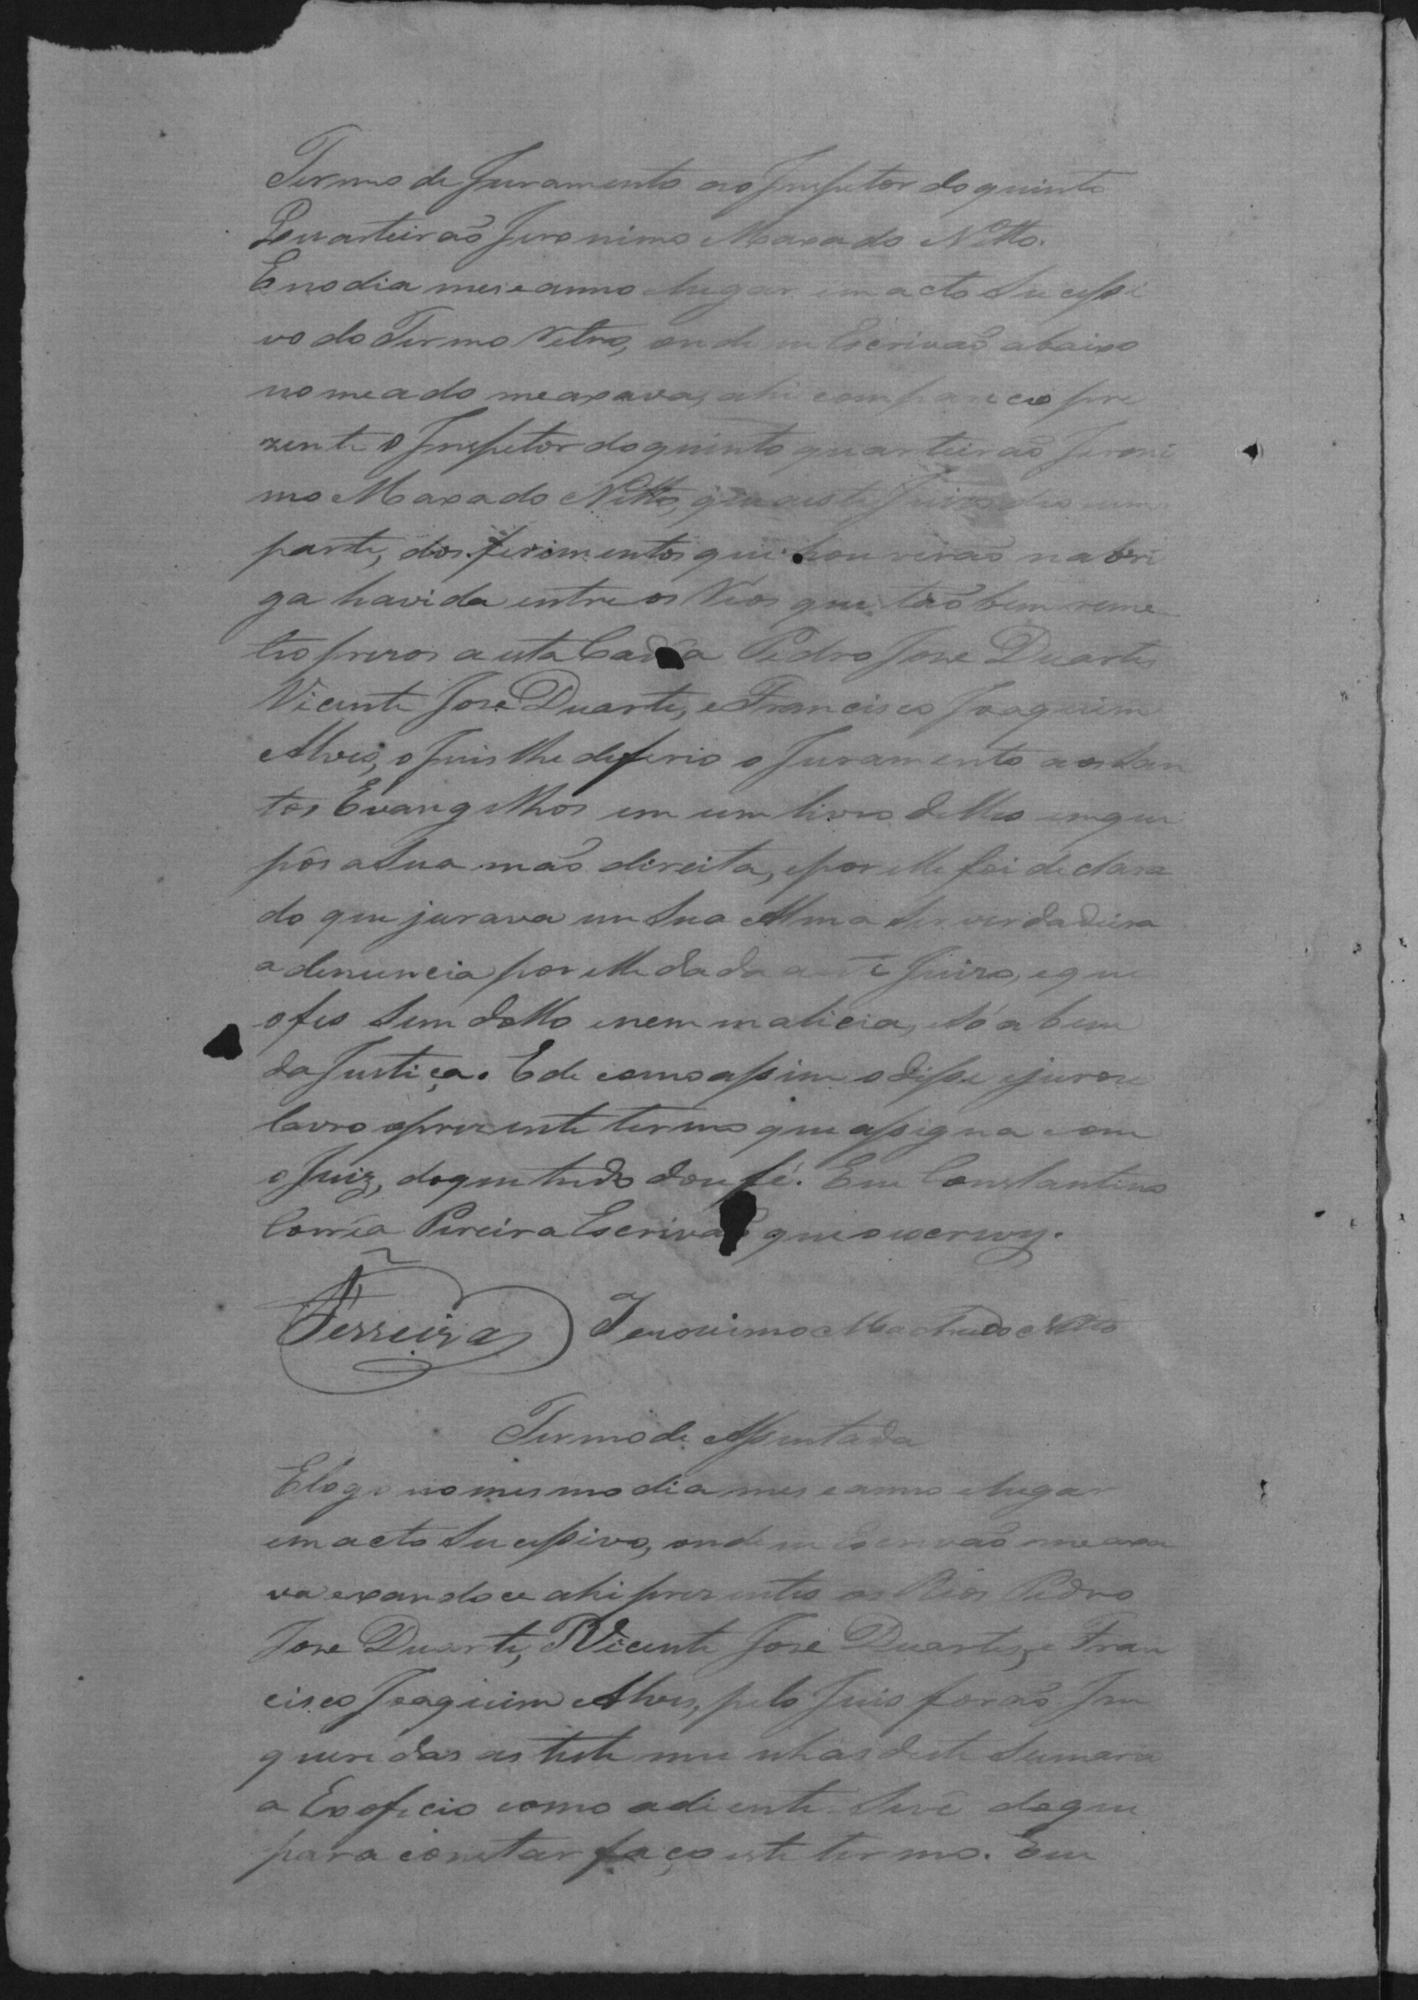 Termo de Juramento ao Inspetor do quinto
Quarteirão Jeronimo Maxado Netto.
E no dia mes e anno e lugar em acto Sucessi
vo do Termo retro, onde eu Escrivão abaixo
nomeado me axava, ahi compareceo pre
zente o Inspetor do quinto quarteirão Jeroni
mo Maxado Netto, que a este Juizo deo uma
parte, dos ferimentos que houverão na bri
ga havida entre os Réos que tão bem reme
teo prezos a esta Cadêa Pedro Jose Duarte
Vicente Jose Duarte, e Francisco Joaquim
Alves, o Juis lhe deferio o Juramento aos San
tos Evangelhos em um livro delles em que
pôs a Sua mão direita, e por elle foi declara
do que jurava em Sua Alma Ser verdadeira
a denuncia por elle dada a este Juizo, e que
o fes Sem dollo e nem malicia, e só a bem
da Justiça. E de como assim o disse e jurou
lavro o prezente termo que assigna com
o Juiz, do que tudo dou fé. Eu Constantino
Corrêa Pereira Escrivão que o escrevy.
Ferreira Jeronimo Machado Netto
Termo de Assentada
E logo no mesmo dia mes e anno e lugar
em acto Sucessivo, onde eu Escrivão me axa
va e xandoce ahi prezentes os Réos Pedro
Jose Duarte, Vicente José Duarte, e Fran
cisco Joaquim Alves, pelo Juis forão In
queridas as testemunhas deste Sumario
a Exoficio como adiente Se vê do que
para constar faço este termo. Eu